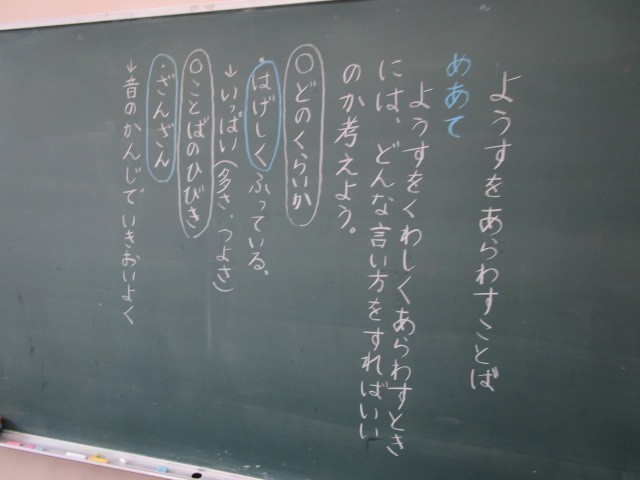 ようすをあらわすことば
めあて
ようすをくわしくあらわすとき
には、どんな言い方をすればいい
のか考えよう。
○どのくらいか
・はげしくふっている。
→いっぱい(多さ、つよさ)
○ことばのひびき
・ざんざん
→音のかんじでいきおいよく